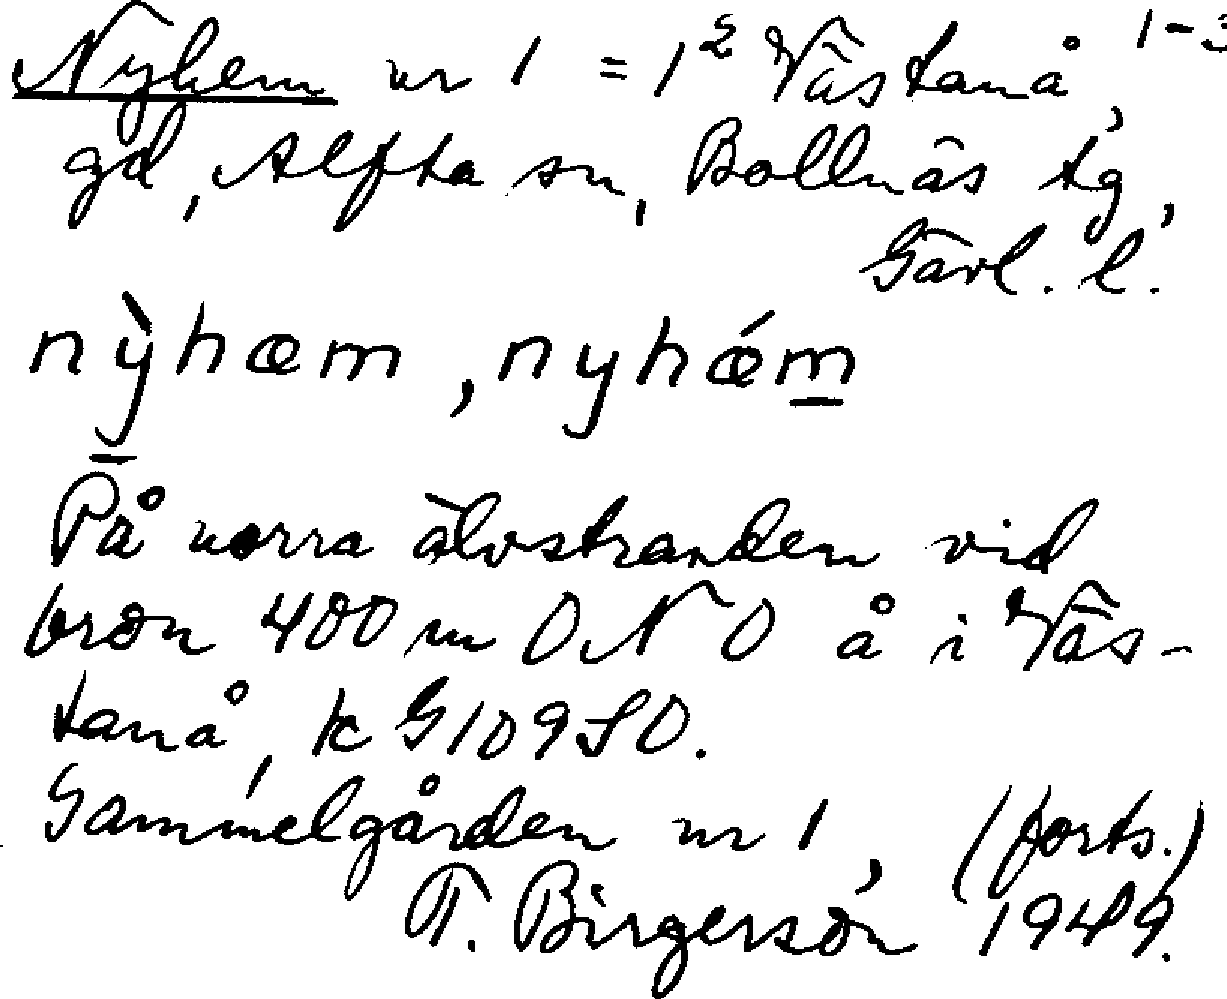 Nyhem nr 1 = 1² Västanå, 1-3
gd, Alfta sn, Bollnäs tg,
Gävl. l.
nỳhæm, nyhǽm
På norra älvstranden vid
bron 400 m ONO å i Väs-
tanå, k G109SO.
Gammelgården nr 1, (forts.)
T. Birgerson 1949.